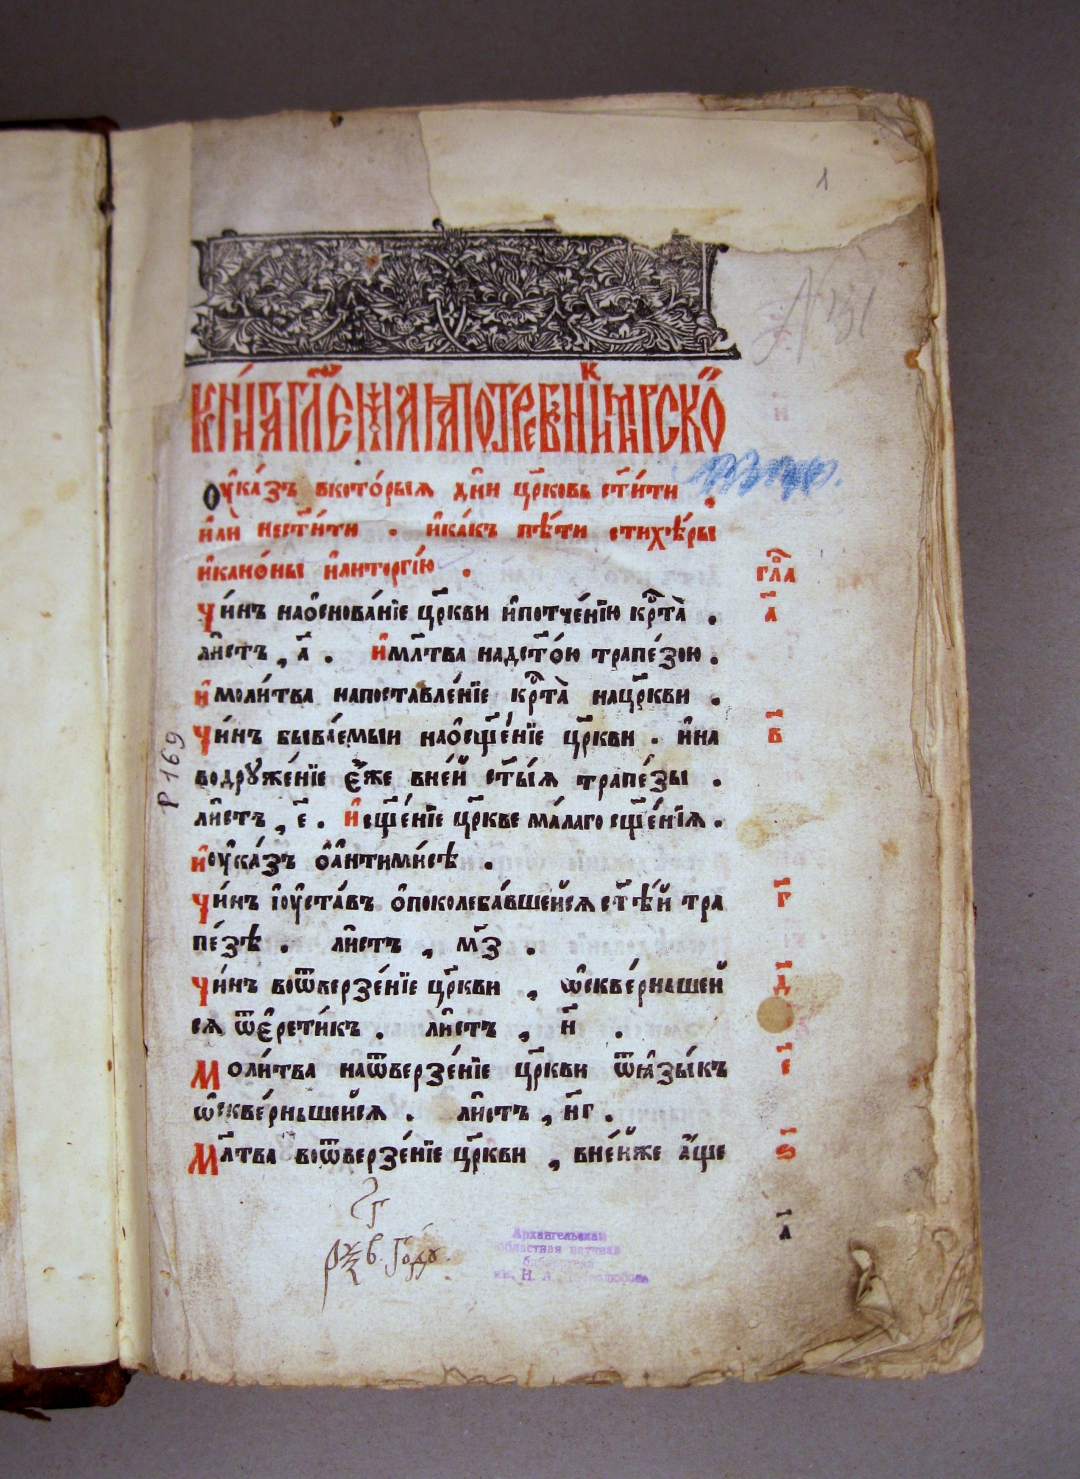 1
КНИ́ГА ГЛЕМАѦ ПОТРЕБНИКЪ МИРСКО́Й
Оу҆ка́зъ вкото́рыѧ дн҃и цр҃ковь ст҃и́ти ,
и҆ли нест҃и́ти . и҆ка́къ пѣ́ти стихѣ́ры
и҆кано́ны и҆литоргі́ю .
гл҃ва
Чи́нъ нао҆снова́нїе цр҃кви и҆потче́нїю кр҃та̀ . а҃
ли́стъ , а҃ . и҆мл҃тва надст҃о́ю трапе́зою .
и҆моли́тва напоставле́нїе кр҃та̀ нацр҃кви .
Чи́нъ быва́емыи нао҆сщ҃е́нїе цр҃кви . и҆на в҃
водруже́нїе є҆́же вне́й ст҃ы́ѧ трапе́зы .
ли́стъ , є҃ . и҆сщ҃е́нїе цр҃кве ма́лаго сщ҃е́нїѧ .
и҆оу҆ка́зъ о҆а҆нтими́сѣ .
Чи́нъ і҆оу҆ста́въ о҆поколеба́вшейсѧ ст҃ѣ́й тра г҃
пе́зѣ . ли́стъ , мз҃ .
Чи́нъ воѿверзе́нїе цр҃кви , ѡ҆скве́рньшей д҃
сѧ ѿє҆рети́къ . ли́стъ , н҃ .
Моли́тва наѿверзе́нїе цр҃кви ѿꙗ҆зы́къ є҃
ѡ҆скве́рньшейсѧ . ли́стъ , нг҃ .
Мл҃тва воѿверзе́нїе цр҃кви , вне́йже а҆́ще ѕ҃
а҃
Р 169
году
Архангельская
областная научная
библиотека
им. Н. А. Добролюбова